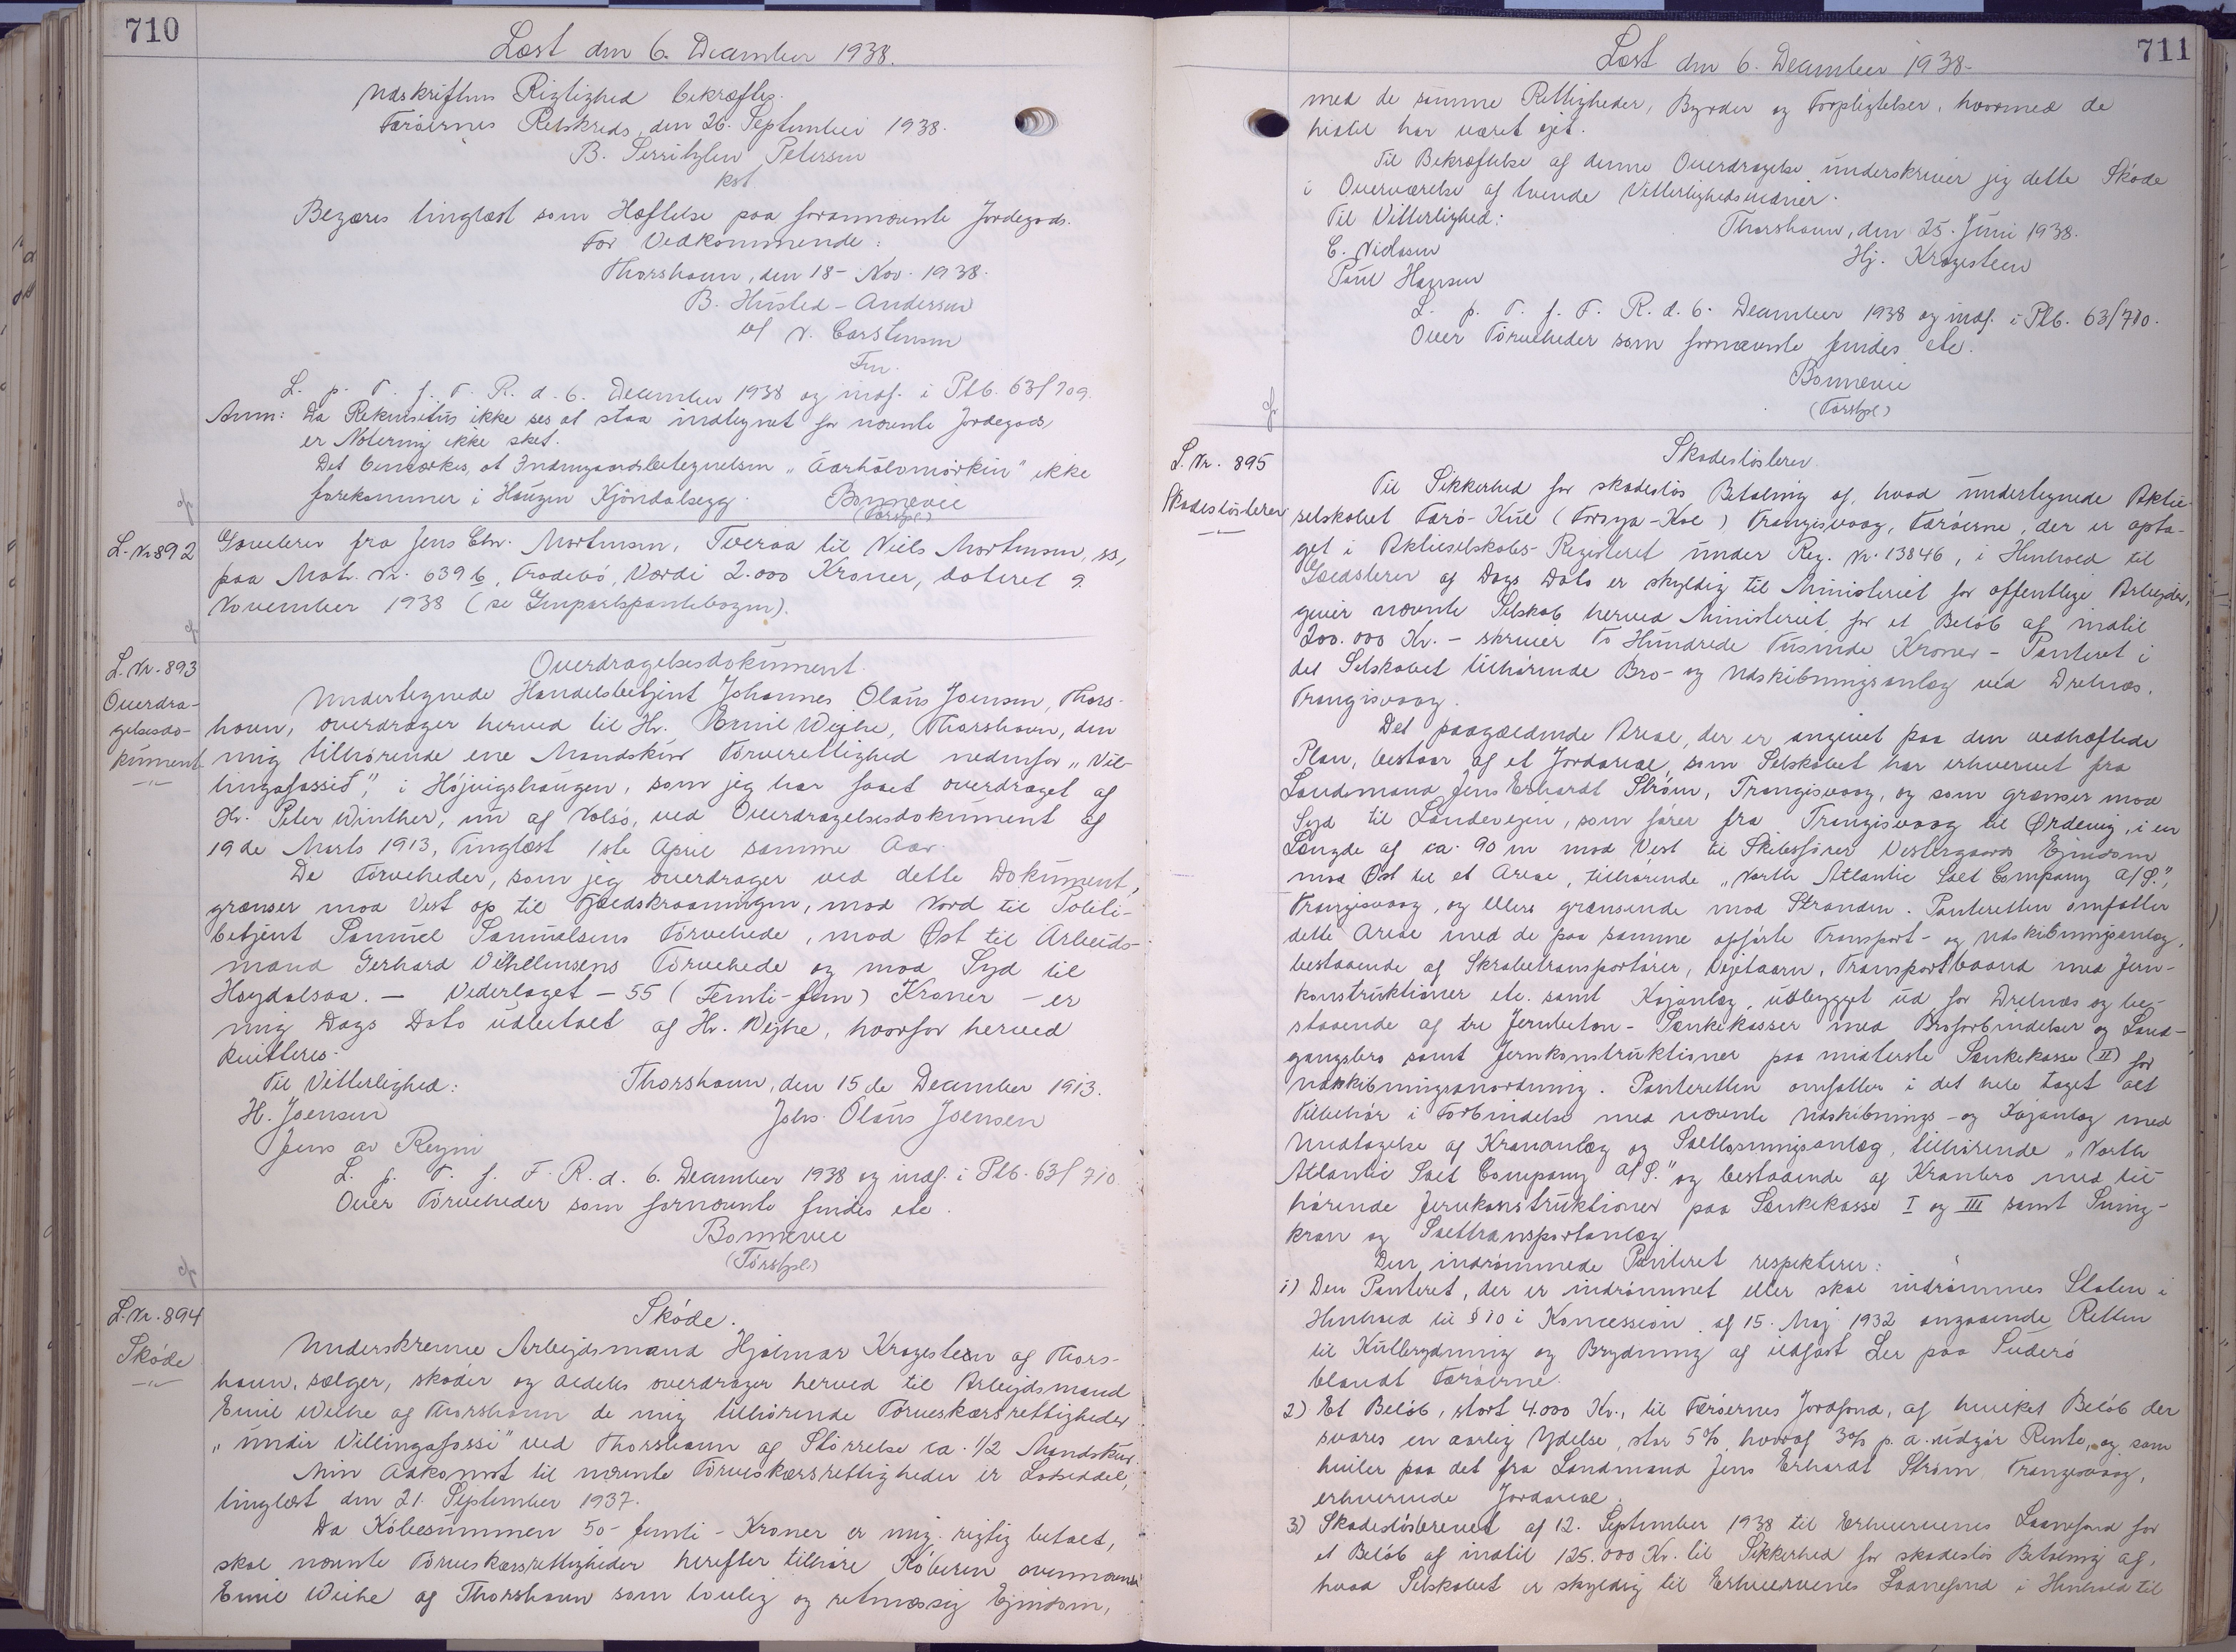 710
Læst den 6. December 1938.
Udskriftens Rigtighed bekræftes.
Færøernes Retskreds, den 26. September 1938.
B. Serritzlew Petersen
kst
Begæres tinglæst som Hæftelse paa forannævnte Jordegods.
For Vedkommende:
Thorshavn, den 18 - Nov. 1938.
B. Husted-Andersen
v/ N. Carstensen
Fm.
L. p. T. f. F. R. d. 6. December 1938 og indf. i Ptb. 63/709.
Anm: Da Rekvisitus ikke ses at staa indtegnet for nævnte Jordegods,
er Notering ikke sket.
Det bemærkes, at Indengaardsbetegnelsen "Aarhólvmörkin" ikke
forekommer i Haugen Kjöndalsegg.
Bonnevie
(Tórshpl)
L. Nr 892
Gavebrev fra Jens Chr. Mortensen, Tveraa til Niels Mortensen, ss,
paa Matr. Nr. 639 b, Frodebö, Værdi 2.000 Kroner, dateret 9.
November 1938 (se Genpartspantebogen).
L. Nr. 893
Overdra-
gelsesdo-
kument
Overdragelsesdokument.
Undertegnede Handelsbetjent Johannes Olaus Joensen, Thors-
havn, overdrager herved til Hr. Emil Wejhe, Thorshavn, den
mig tilhørende ene Mandskur Törverettighed nedenfor "Vil-
lingafossið", i Höjvigshaugen, som jeg har faaet overdraget af
Hr. Peter Winther, nu af Nolsö, ved Overdragelsesdokument af
19 de Marts 1913, Tinglæst 1ste April samme Aar.
De Törveheder, som jeg overdrager ved dette Dokument,
grænser mod Vest op til Fjeldskraaningen, mod Nord til Politi-
betjent Samuel Samuelsens Törvehede, mod Øst til Arbeids-
mand Gerhard Vilhelmsens Törvehede og mod Syd til
Haydalsaa. - Vederlaget - 55 (Femti-fem) Kroner - er
mig Dags Dato udbetalt af Hr. Wejhe, hvorfor herved
kvitteres.
Til Vitterlighed:
Thorshavn, den 15 de December 1913.
H. Joensen
Johs. Olaus Joensen
Jens av Reyni
L. p. T. f. F. R. d. 6. December 1938 og indf. i Ptb. 63/710.
Over Törveheder som fornævnte findes etc.
Bonnevie
(Tórshpl)
L. Nr. 894
Sköde
Sköde.
Underskrevne Arbejdsmand Hjalmar Kragesteen af Thors-
havn, sælger, sköder og aldeles overdrager herved til Arbejdsmand
Emil Weihe af Thorshavn de mig tilhørende Törveskærsrettigheder
"undir Villingafossi" ved Thorshavn af Størrelse ca. 1/2 Mandskur.
Min Adkomst til nævnte Törveskærsrettigheder er Lodseddel,
tinglæst den 21. September 1937.
Da Købesummen 50 - femti - Kroner er mig rigtig betalt,
skal nævnte Törveskærsrettigheder herefter tilhøre Køberen ovennævnte
Emil Weihe af Thorshavn som lovlig og retmæssig Ejendom,
711
Læst den 6. December 1938.
med de samme Rettigheder, Byrder og Forpligtelser, hvormed de
hidtil har været ejet.
Til Bekræftelse af denne Overdragelse underskriver jeg dette Sköde
i Overværelse af tvende Vitterlighedsvidner.
Til Vitterlighed:
Thorshavn, den 25. Juni 1938.
C. Nielsen
Hj. Kragesteen
Poul Hansen
L. p. T. f. F. R. d. 6. December 1938 og indf. i Ptb. 63/710.
Over Törveheder som fornævnte findes etc.
Bonnevie
(Tórshpl)
L. Nr. 895
Skadesløsbrev
Skadesløsbrev.
Til Sikkerhed for skadesløs Betaling af, hvad undertegnede Aktie-
selskabet Færø-Kul (Forsya-Kol) Trangisvaag, Færøerne, der er opta-
get i Aktieselskabs-Registeret under Reg. Nr. 13846, i Henhold til
Gældsbrev af Dags Dato er skyldig til Ministeriet for offentlige Arbejder,
giver nævnte Selskab herved Ministeriet for et Beløb af indtil
200.000 Kr. - skriver To Hundrede Tusinde Kroner - Panteret i
det Selskabet tilhørende Bro- og Udskibningsanlæg ved Drelnæs,
Trangisvaag.
Det paagældende Areal, der er angivet paa den vedhæftede
Plan, bestaar af et Jordareal, som Selskabet har erhvervet fra
Landmand Jens Erhardt Strøm, Trangisvaag, og som grænser mod
Syd til Landevejen, som fører fra Trangisvaag til Ørdevig, i en
Længde af ca. 90 m mod Vest til Skibsfører Vestergaards Ejendom
mod Øst til et Areal, tilhørende "North Atlantic Salt Company A/S.",
Trangisvaag, og ellers grænsende mod Stranden. Panteretten omfatter
dette Areal med de paa samme opførte Transport- og Udskibningsanlæg,
bestaaende af Skrabetransportører, Vejetaarn, Transportbaand med Jern-
konstruktioner etc. samt Kajanlæg, udbygget ud for Drelnæs og be-
staaende af tre Jernbeton-Sænkekasser med Broforbindelser og Land-
gangsbro samt Jernkonstruktioner paa midterste Sænkekasse (II) for
Udskibningsanordning. Panteretten omfatter i det hele taget alt
Tilbehør i Forbindelse med nævnte Udskibnings- og Kajanlæg med
Undtagelse af Krananlæg og Saltlosningsanlæg, tilhørende "North
Atlantic Salt Company A/S." og bestaaende af Kranbro med til-
hørende Jernkonstruktioner paa Sænkekasse I og III samt Sving-
kran og Salttransportanlæg.
Den indrømmede Panteret respekterer:
1) Den Panteret, der er indrømmet eller skal indrømmes Staten i
Henhold til § 10 i Koncession af 15. Maj 1932 angaaende Retten
til Kulbrydning og Brydning af ildfast Ler paa Suderö
blandt Færøerne.
2) Et Beløb, stort 4.000 Kr., til Færøernes Jordfond, af hvilket Beløb der
svares en aarlig Ydelse, stor 5%, hvoraf 3% p. a. udgør Rente, og som
hviler paa det fra Landmand Jens Erhardt Strøm Trangisvaag,
erhvervede Jordareal.
3) Skadesløsbrevet af 12. September 1938 til Erhvervenes Laanefond for
et Beløb af indtil 125.000 Kr. til Sikkerhed for skadesløs Betaling af,
hvad Selskabet er skyldig til Erhvervenes Laanefond i Henhold til